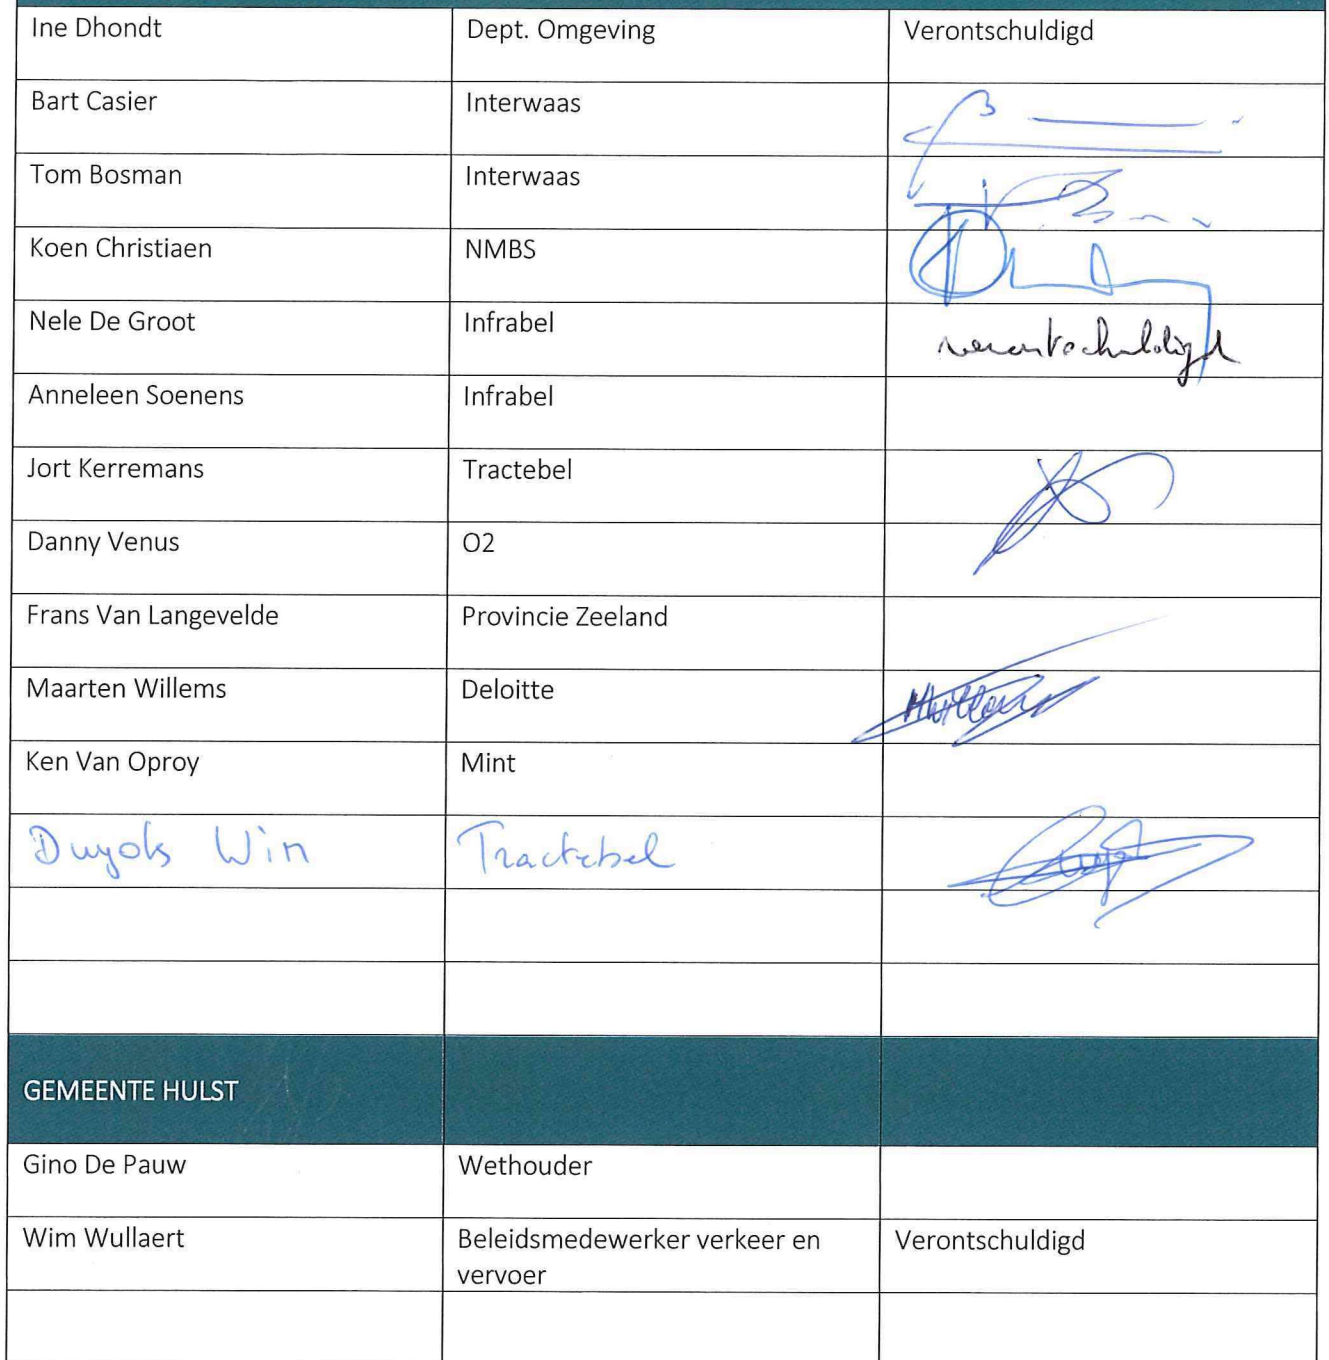 Ine Dhondt Dept. Omgeving Verontschuldigd
Bart Casier Interwaas
Tom Bosman Interwaas
Koen Christiaen NMBS
Nele De Groot Infrabel verontschuldigd
Anneleen Soenens Infrabel
Jort Kerremans Tractebel
Danny Venus O2
Frans Van Langevelde Provincie Zeeland
Maarten Willems Deloitte
Ken Van Oproy Mint
Tractebel
GEMEENTE HULST
Gino De Pauw Wethouder
Wim Wullaert Beleidsmedewerker verkeer en Verontschuldigd
vervoer